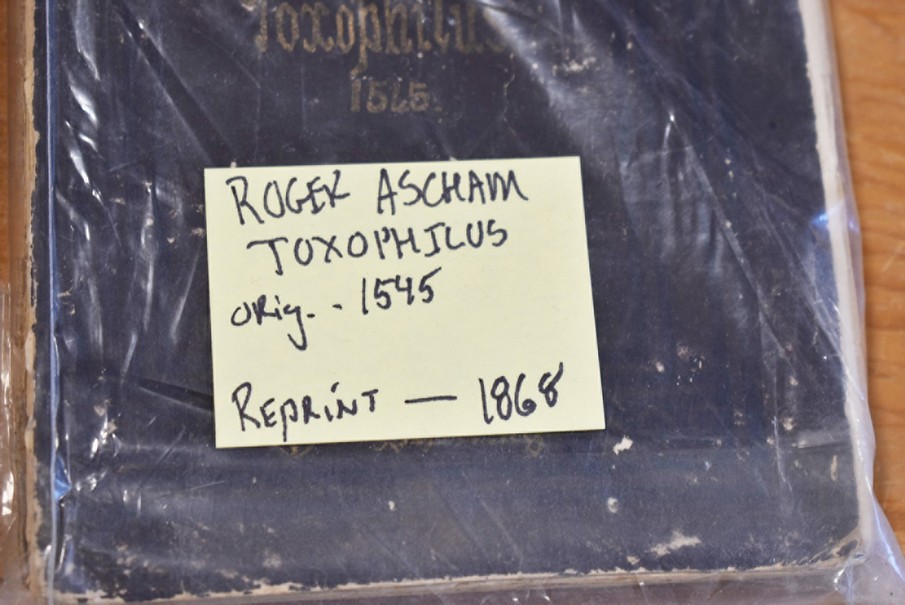 Toxophilus
1545.
ROGER ASCHAM
TOXOPHILUS
ORig. - 1545
REPRINT — 1868